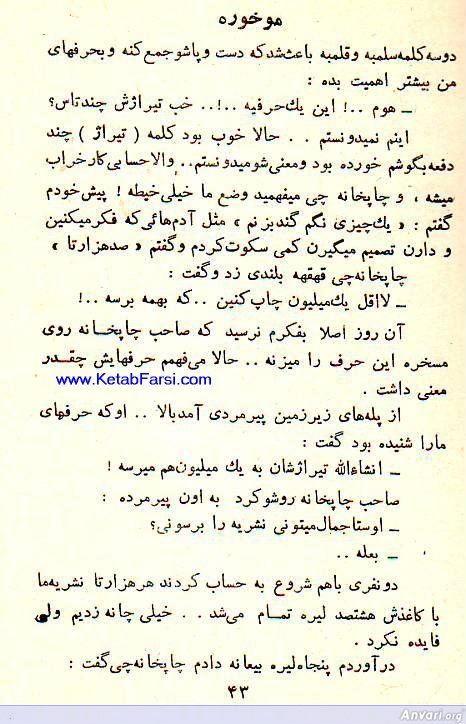 موخوره
دوسه کلمه سلمبه وقلمبه باعث شد که دست و پاشو جمع کنه و بحرفهای
من بیشتر اهمیت بده :
ـ هوم ..! این یك حرفیه ..!.. خب تیراژش چندتاس؟
اینم نمیدونستم . . حالا خوب بود کلمه ( تیراژ ) چند
دفعه بگوشم خورده بود ومعنی شو میدونستم .. والاحسابی کار خراب
میشه ، و چاپخانه چی میفهمید وضع ما خیلی خیطه ! پیش خودم
گفتم : « یك چیزی نگم گند بزنم » مثل آدم هائی که فکر میکنین
و دارن تصمیم میگیرن کمی سکوت کردم وگفتم « صدهزارتا »
چاپخانه چی قهقهه بلندی زد وگفت :
ـ لااقل یك میلیون چاپ کنین .. که بهمه برسه ..!
آن روز اصلا بفکرم نرسید که صاحب چاپخانه روی
مسخره این حرف را میزنه .. حالا می فهمم حرفهایش چقدر
معنی داشت .
www.KetabFarsi.com
از پله های زیرزمین پیرمردی آمدبالا .. اوکه حرفهای
مارا شنیده بود گفت :
ـ انشاءالله تیراژشان به یك میلیون هم میرسه !
صاحب چاپخانه روشو کرد به اون پیرمرده :
ـ اوستا جمال میتونی نشریه را برسونی؟
ـ بعله ..
دونفری باهم شروع به حساب کردند هر هزارتا نشریه ما
با کاغذش هشتصد لیره تمام می شد . . خیلی چانه زدیم ولی
فایده نکرد .
درآوردم پنجاه لیره بیعانه دادم چاپخانه چی گفت :
۴۳
Anvari.org